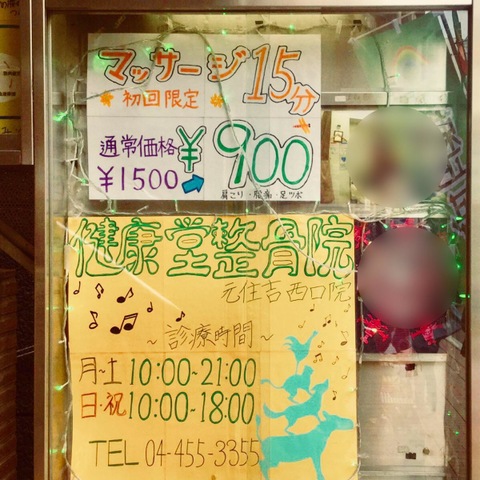 マッサージ 15分
初回限定
通常価格
¥1500
¥900
肩こり・腰痛・足ツボ
健康堂整骨院
元住吉西口院
~診療時間~
月~土 10:00~21:00
日・祝 10:00~18:00
TEL 04-455-3355